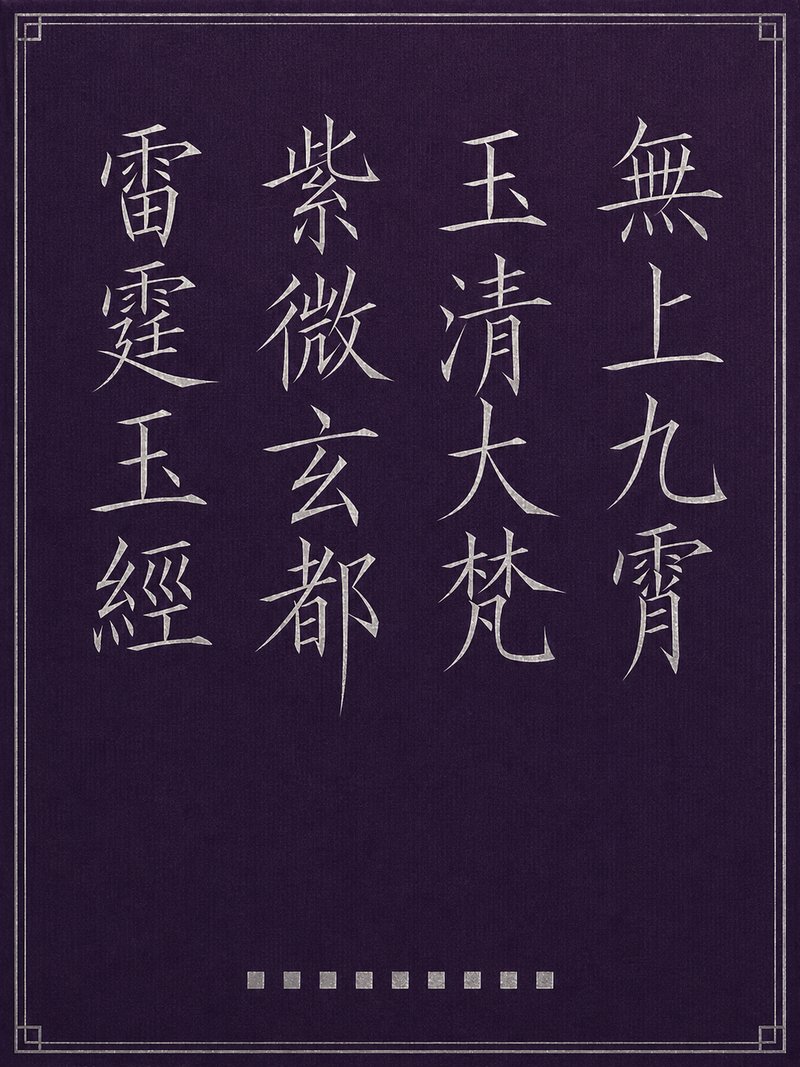 無上九霄
玉清大梵
紫微玄都
雷霆玉經